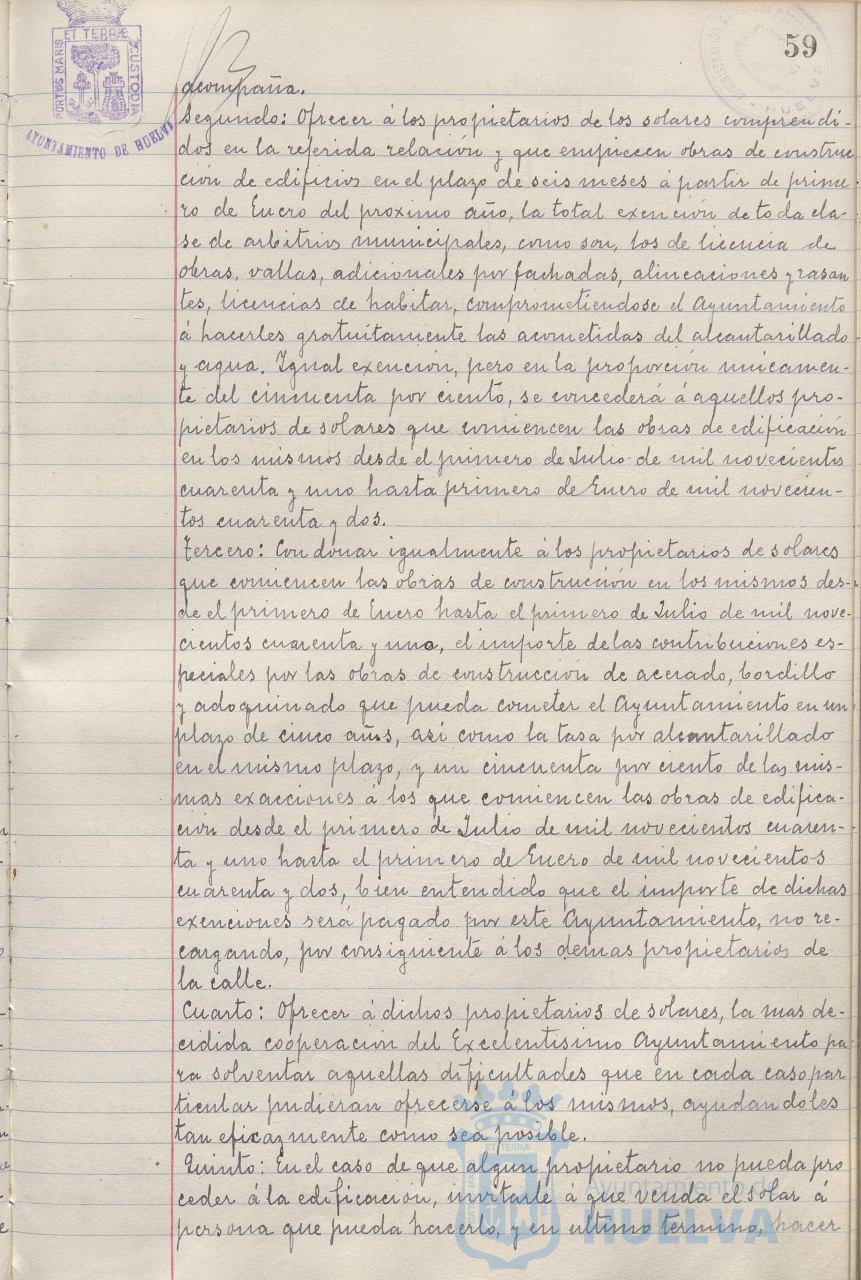 59
PORTUS MARIS
ET TERRÆ
CUSTODIA
AYUNTAMIENTO DE HUELVA
acompaña.
Segundo: Ofrecer á los propietarios de los solares comprendi-
dos en la referida relación y que empiecen obras de construc
ción de edificios en el plazo de seis meses á partir de prime-
ro de Enero del proximo año, la total exención de toda cla-
se de arbitrios municipales, como son, los de licencia de
obras, vallas, adicionales por fachadas, alineaciones y rasan
tes, licencias de habitar, comprometiendose el Ayuntamiento
á hacerles gratuitamente las acometidas del alcantarillado
y agua. Igual exención, pero en la proporción unicamen-
te del cincuenta por ciento, se concederá á aquellos pro-
pietarios de solares que comiencen las obras de edificación
en los mismos desde el primero de Julio de mil novecientos
cuarenta y uno hasta primero de Enero de mil novecien-
tos cuarenta y dos.
Tercero: Condonar igualmente á los propietarios de solares
que comiencen las obras de construcción en los mismos des-
de el primero de Enero hasta el primero de Julio de mil nove-
cientos cuarenta y uno, el importe de las contribuciones es-
peciales por las obras de construcción de acerado, bordillo
y adoquinado que pueda cometer el Ayuntamiento en un
plazo de cinco años, así como la tasa por alcantarillado
en el mismo plazo, y un cincuenta por ciento de las mis-
mas exacciones á los que comiencen las obras de edifica-
ción desde el primero de Julio de mil novecientos cuaren-
ta y uno hasta el primero de Enero de mil novecientos
cuarenta y dos, bien entendido que el importe de dichas
exenciones será pagado por este Ayuntamiento, no re-
cargando, por consiguiente á los demas propietarios de
la calle.
Cuarto: Ofrecer á dichos propietarios de solares, la mas de-
cidida cooperación del Excelentisimo Ayuntamiento pa-
ra solventar aquellas dificultades que en cada caso par
ticular pudieran ofrecerse á los mismos, ayudandoles
tan eficazmente como sea posible.
Quinto: En el caso de que algun propietario no pueda pro
ceder á la edificación, invitarle á que venda el solar á
persona que pueda hacerlo, y en ultimo termino, hacer
Ayuntamiento de
HUELVA